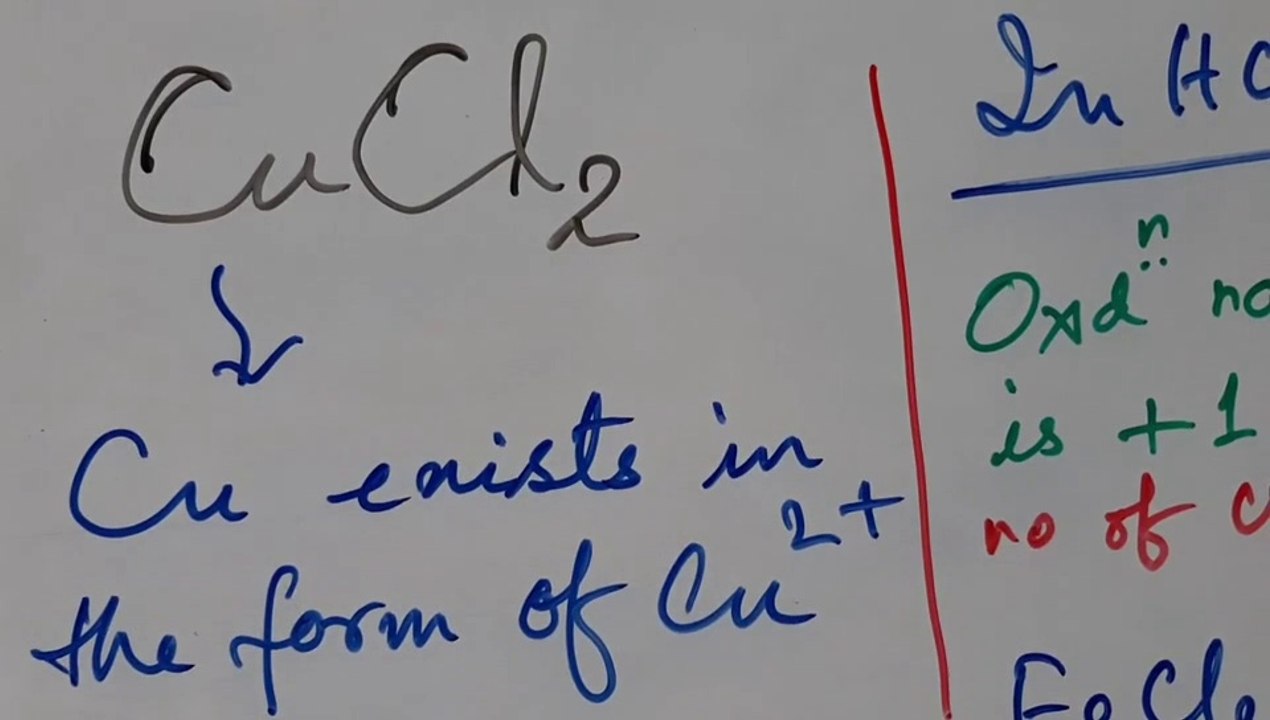 CuCl₂
Cu exists in
the form of Cu²⁺
In HC
Oxdⁿ no
is +1
no of C
FeCl₂